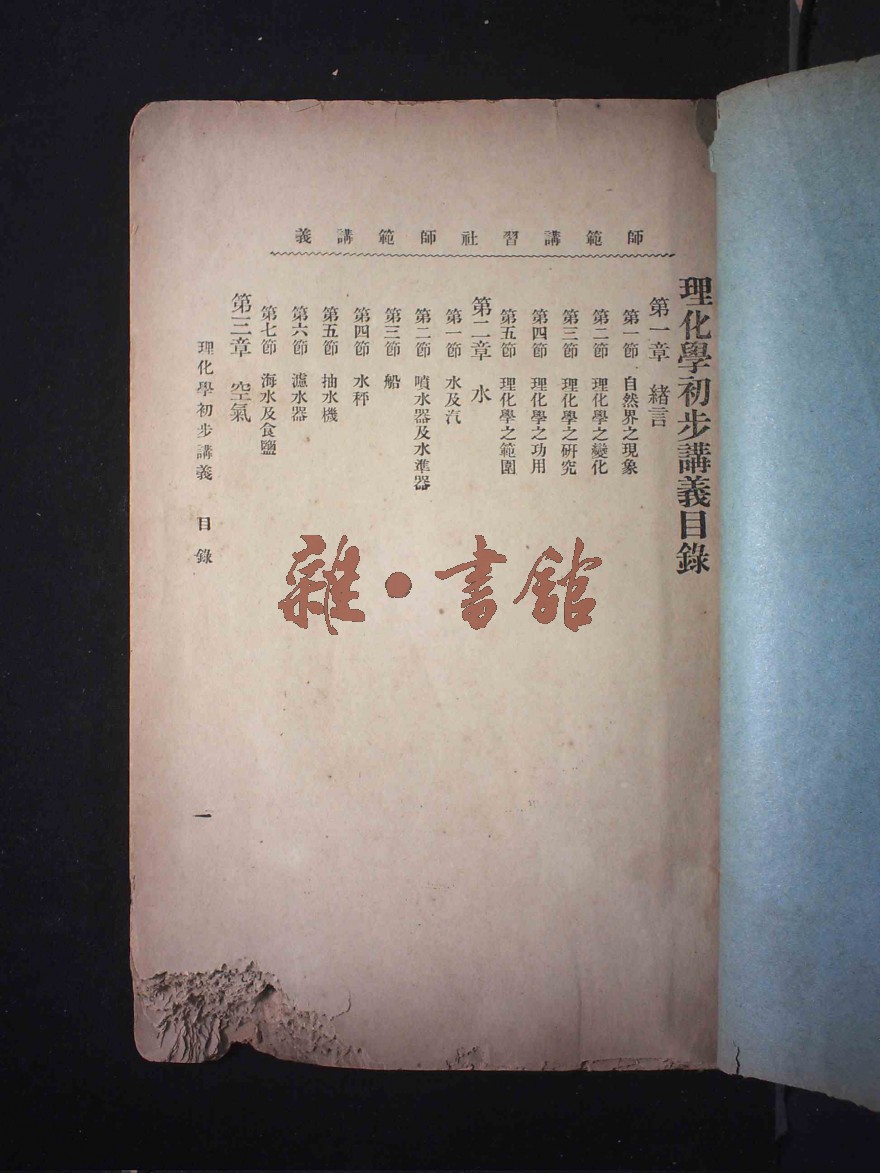 師範講習社師範講義
理化學初步講義目錄
第一章 緒言
第一節 自然界之現象
第二節 理化學之變化
第三節 理化學之研究
第四節 理化學之功用
第五節 理化學之範圍
第二章 水
第一節 水及汽
第二節 噴水器及水準器
第三節 船
第四節 水秤
第五節 抽水機
第六節 濾水器
第七節 海水及食鹽
第三章 空氣
理化學初步講義 目錄
一
雜·書館